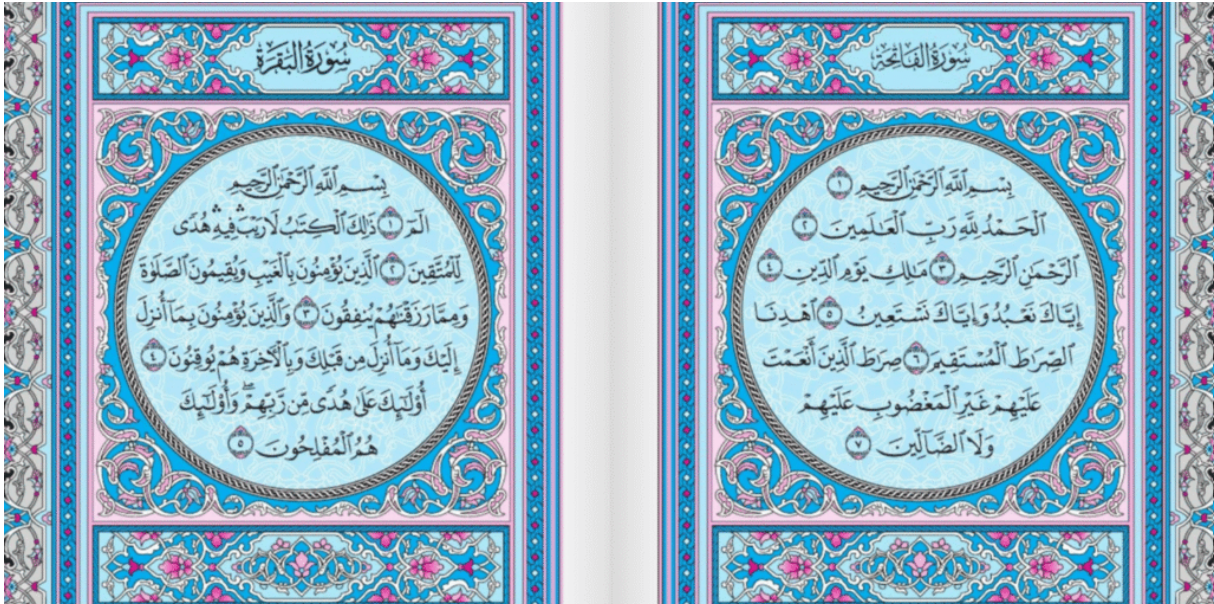 سُورَةُ الْفَاتِحَةِ
بِسْمِ ٱللَّهِ ٱلرَّحْمَٰنِ ٱلرَّحِيمِ ١
ٱلْحَمْدُ لِلَّهِ رَبِّ ٱلْعَٰلَمِينَ ٢
ٱلرَّحْمَٰنِ ٱلرَّحِيمِ ٣ مَٰلِكِ يَوْمِ ٱلدِّينِ ٤
إِيَّاكَ نَعْبُدُ وَإِيَّاكَ نَسْتَعِينُ ٥ ٱهْدِنَا
ٱلصِّرَٰطَ ٱلْمُسْتَقِيمَ ٦ صِرَٰطَ ٱلَّذِينَ أَنْعَمْتَ
عَلَيْهِمْ غَيْرِ ٱلْمَغْضُوبِ عَلَيْهِمْ
وَلَا ٱلضَّآلِّينَ ٧
سُورَةُ الْبَقَرَةِ
بِسْمِ ٱللَّهِ ٱلرَّحْمَٰنِ ٱلرَّحِيمِ
الٓمٓ ١ ذَٰلِكَ ٱلْكِتَٰبُ لَا رَيْبَ ۛ فِيهِ ۛ هُدًى
لِّلْمُتَّقِينَ ٢ ٱلَّذِينَ يُؤْمِنُونَ بِٱلْغَيْبِ وَيُقِيمُونَ ٱلصَّلَوٰةَ
وَمِمَّا رَزَقْنَٰهُمْ يُنفِقُونَ ٣ وَٱلَّذِينَ يُؤْمِنُونَ بِمَآ أُنزِلَ
إِلَيْكَ وَمَآ أُنزِلَ مِن قَبْلِكَ وَبِٱلْءَاخِرَةِ هُمْ يُوقِنُونَ ٤
أُو۟لَٰٓئِكَ عَلَىٰ هُدًى مِّن رَّبِّهِمْ ۖ وَأُو۟لَٰٓئِكَ
هُمُ ٱلْمُفْلِحُونَ ٥